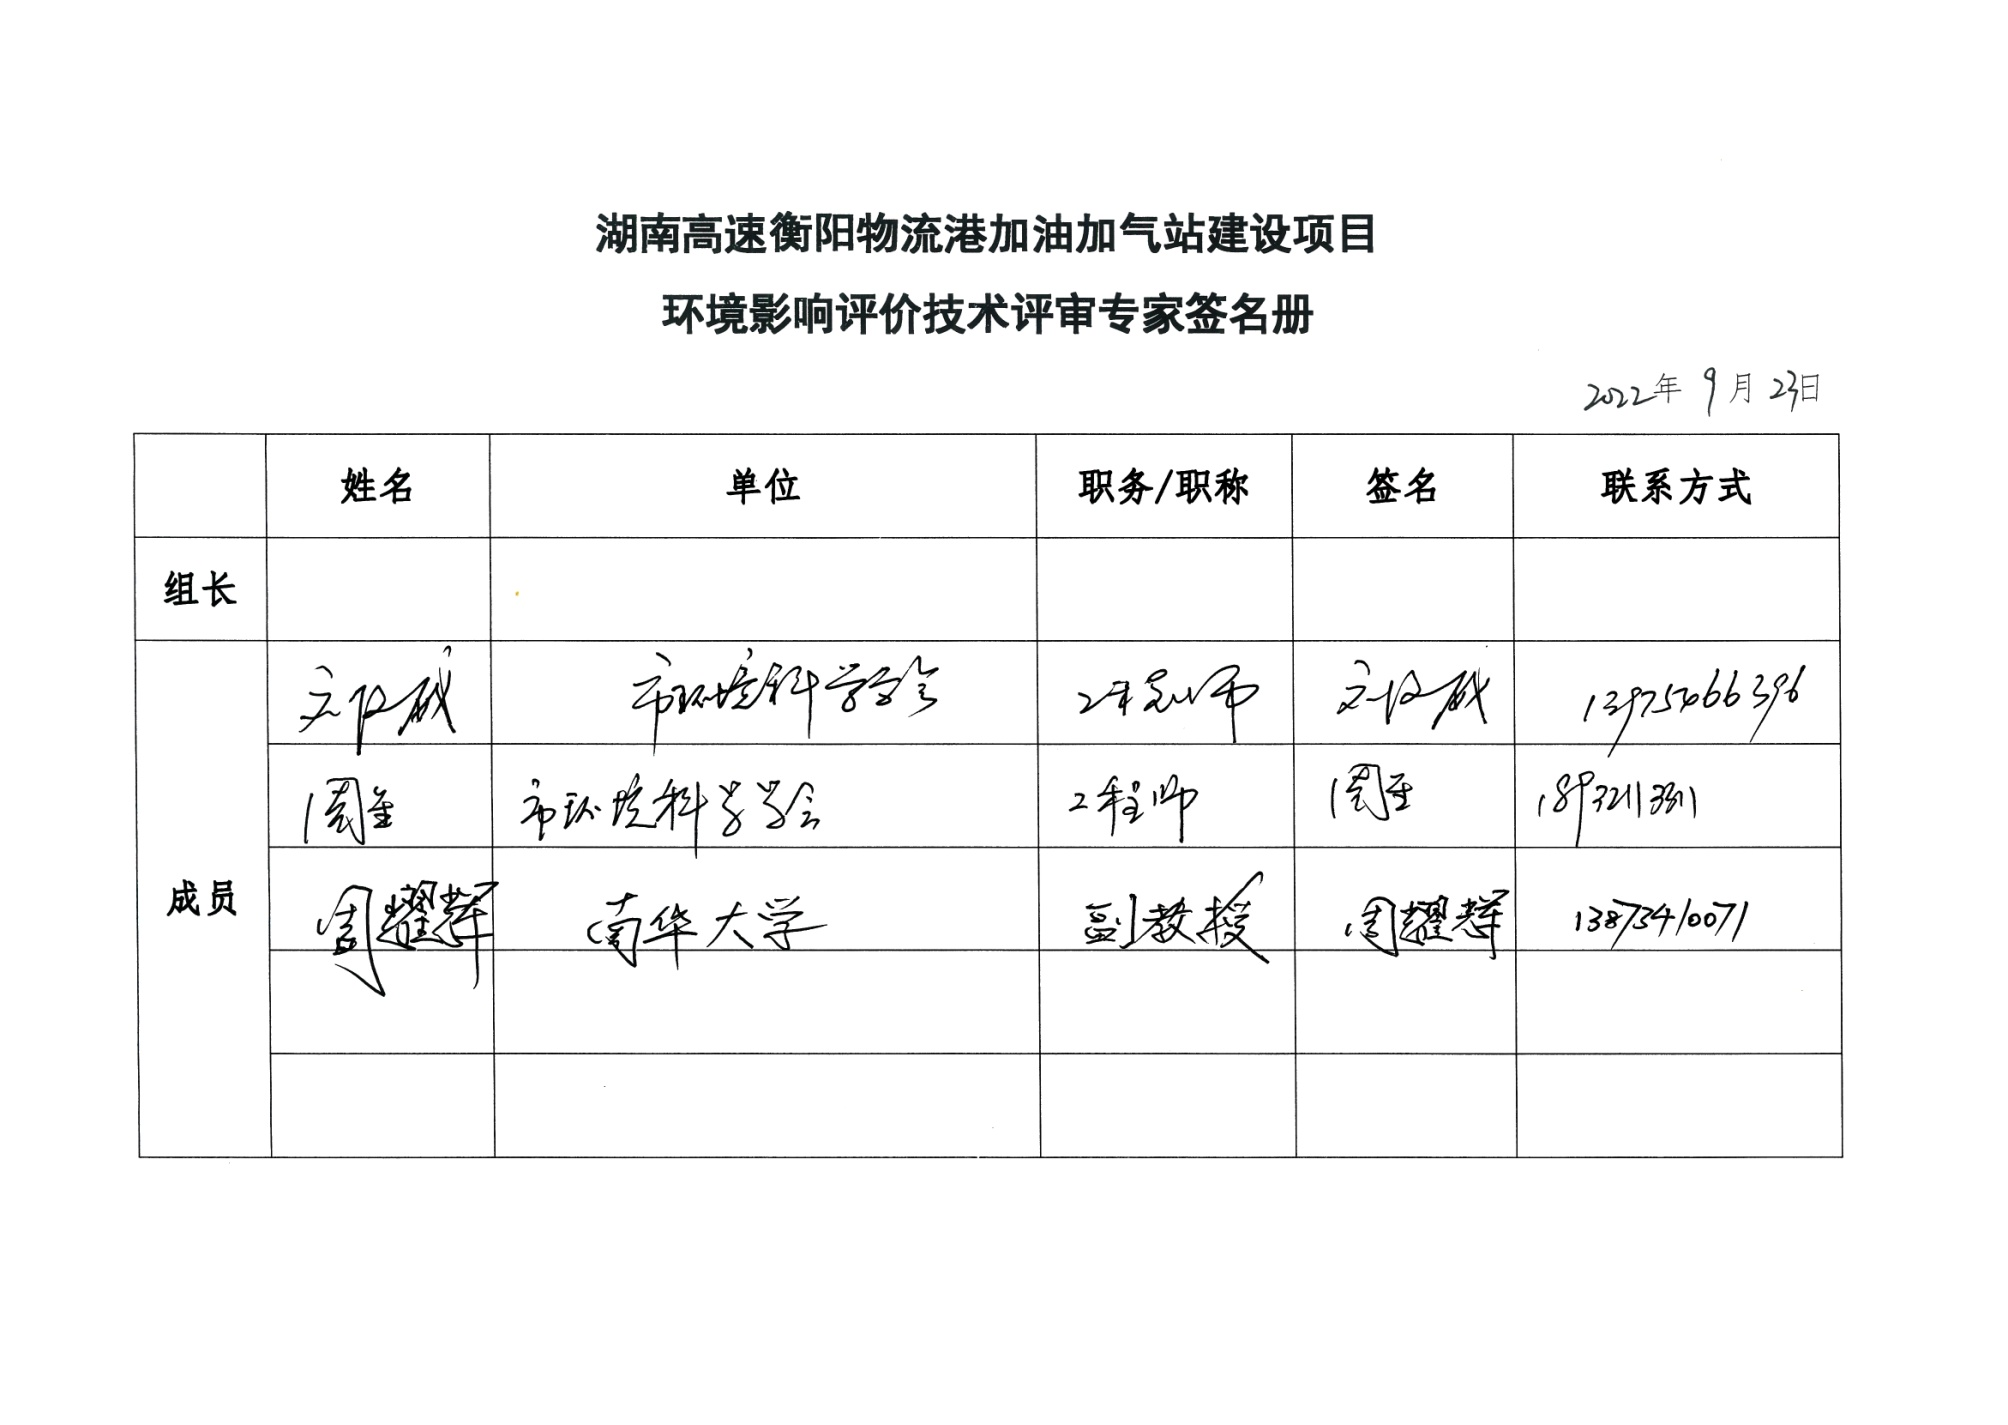 湖南高速衡阳物流港加油加气站建设项目
环境影响评价技术评审专家签名册
2022年 9月 23日
姓名 单位 职务/职称 签名 联系方式
组长
市环境科学学会 工程师 13975466396
市环境科学学会 工程师
成员
周耀辉 南华大学 副教授 周耀辉 13873410071